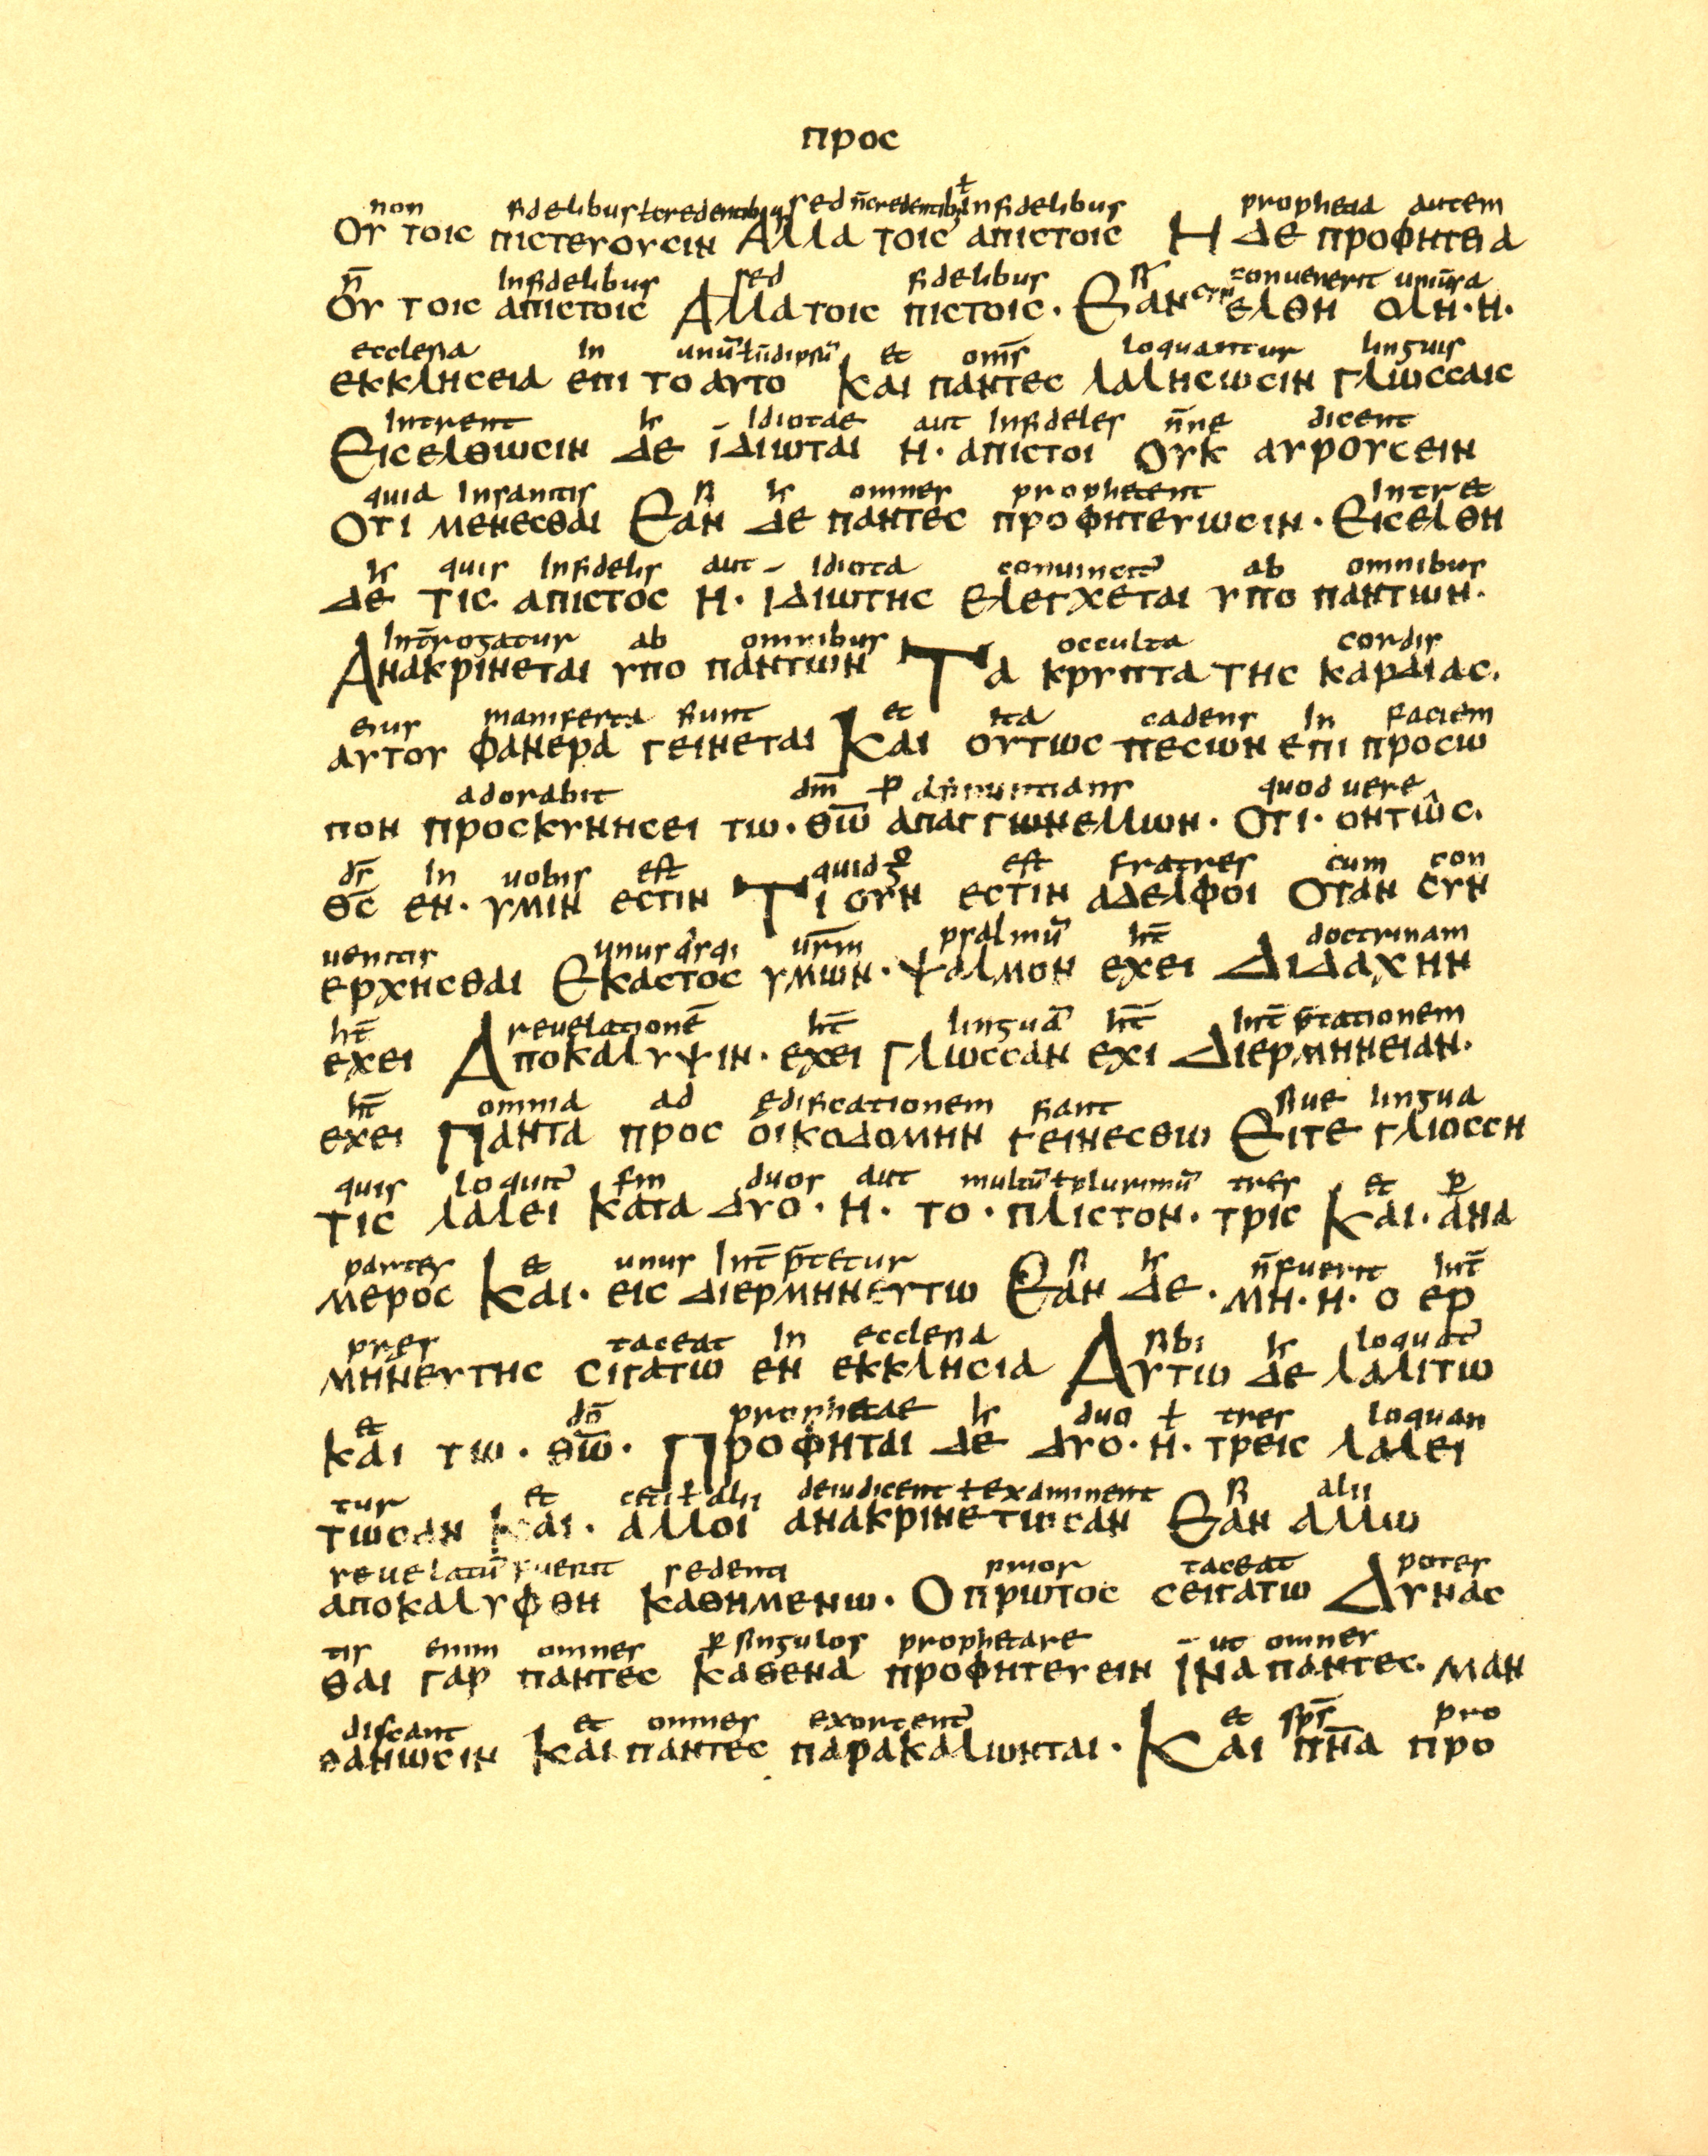 προς
non fidelibus ł credentibus sed n̄ credentib; ł infidelibus prophetia autem
Ου τοις πιστευουσιν Αλλα τοις απιστοις Η δε προφητεια
n̄ Infidelibus sed fidelibus si conuenerit uniūsa
Ου τοις απιστοις Αλλα τοις πιστοις · Εαν συν ελθη ολη · η ·
ecclesia In unū ł ī idipsū et om̄s loquantur linguis
εκκλησεια επι το αυτο Και παντες λαλησωσιν γλωσσαις
Intrent Idiotae aut Infideles n̄ne dicent
Εισελθωσιν δε ϊδιωται η · απιστοι Ουκ αυρουσειν
quia Insanitis si omnes prophetent Intret
Οτι μενεσθαι Εαν δε παντες προφητευωσιν · Εισελθη
quis Infidelis aut Idiota conuincit᷑ ab omnibus
δε τις απιστος η · ιδιωτης ελεγχεται υπο παντων ·
Int̄rogatur ab omnibus occulta cordis
Ανακρινεται υπο παντων Τα κρυπτα της καρδιας ·
eius manifesta fiunt et ita cadens In faciem
αυτου φανερα γεινεται Και ουτως πεσων επι προσω
adorabit dm̄ quod uere
πον προσκυνησει τω · θω̄ απαγγωνελλων · Οτι · οντως ·
ds̄ In uobis est quid est fratres cum con
θς̄ εν · υμιν εστιν Τι ουν εστιν αδελφοι Οταν συν
uenitis unusq̄sqi ur̄m psalmū ht̄ doctrinam
ερχησθαι Εκαστος υμων · ψαλμον εχει Διδαχην
ht̄ reuelationē ht̄ linguā ht̄ Int̄p̄tationem
εχει Αποκαλυψιν · εχει Γλωσσαν εχι Διερμηνειαν ·
ht̄ omnia ad ędificationem fiant siue lingua
εχει Παντα προς οικοδομην γεινεσθω Ειτε γλωσση
quis loquit᷑ duos aut multū ł plurimū tres et p̄
τις λαλει Κατα δυο · η · το · πλιστον · τρις Και · ανα
partes et unus Int̄p̄tetur si n̄ fuerit Int̄
μερος Και · εις διερμηνευτω Εαν δε · μη · η · ο ερ
pres taceat In ecclesia sibi loquat᷑
μηνευτης σιγατω εν εκκλησια Αυτω δε λαλιτω
et dō prophetae duo ł tres loquan
και τω · θω̄ · Προφηται δε δυο · η · τρεις λαλει
tur et cet̄i ł alii deiudicent ł examinent si alii
τωσαν Και · αλλοι ανακρινετωσαν Εαν αλλω
reuelatū fuerit sedenti prior taceat potes
αποκαλυφθη καθημενω · Ο πρωτος σειγατω Δυνας
tis enim omnes p̄ singulos prophetare ut omnes
θαι γαρ παντες καθενα προφητευειν ϊνα παντες · μαν
discant et omnes exortent᷑ et sps̄ pro
θανωσιν Και παντες παρακαλωνται · Και πν̄α προ